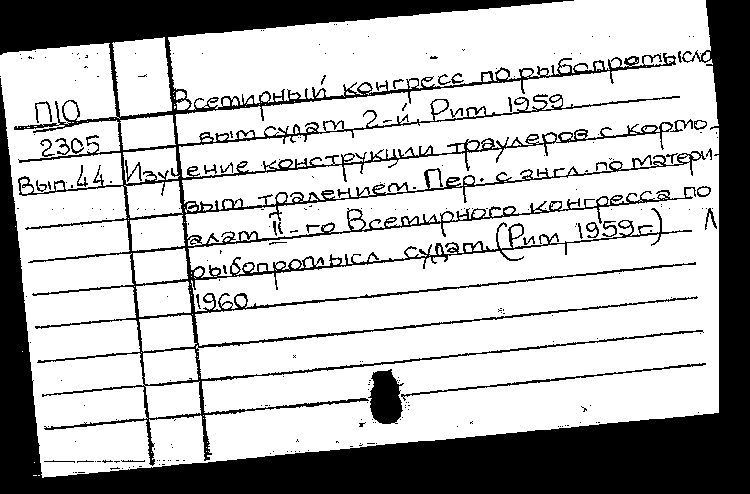 Всемирный конгресс по рыбопромысло
П10
вым судам, 2-й. Рим. 1959.
2305
Изучение конструкции траулеров с кормо-
Вып. 44.
вым тралением. Пер. с англ. по матери-
алам II-го Всемирного конгресса по
рыбопромысл. судам. (Рим, 1959г.) Л
1960.